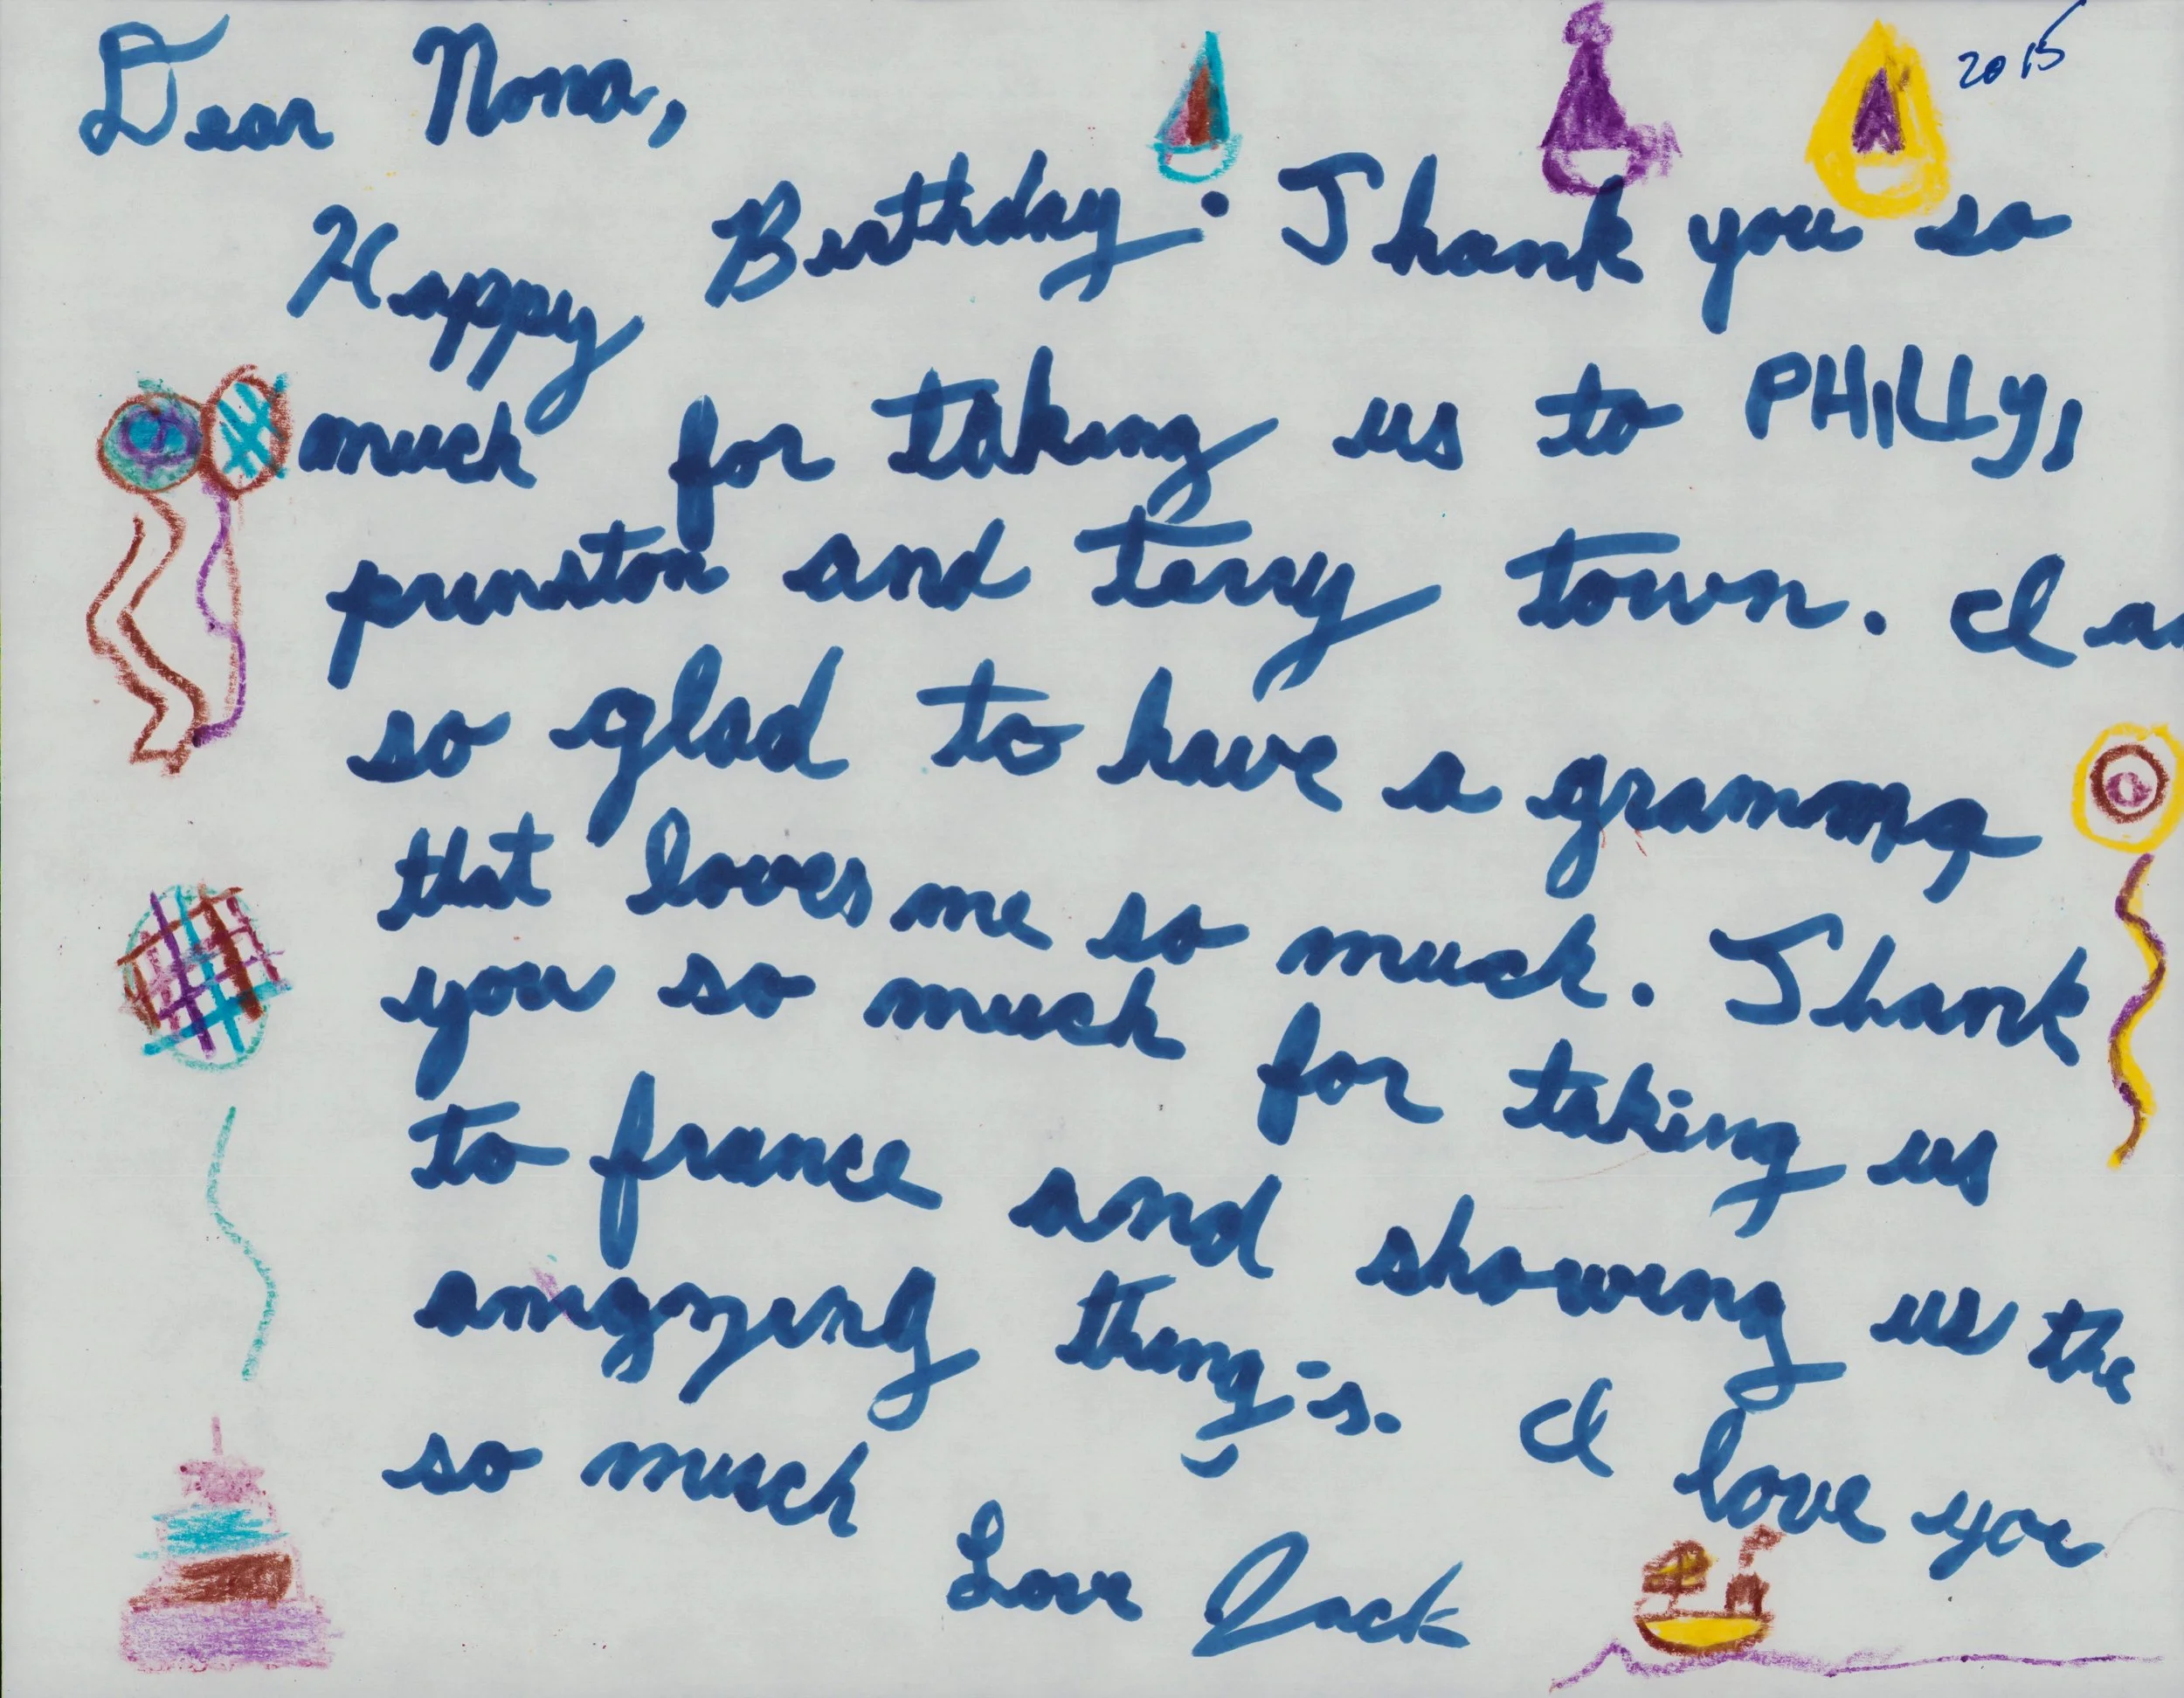 2015
Dear Nona,
Happy Birthday. Thank you so
much for taking us to PHILLY,
prinston and terry town. I a
so glad to have a gramma
that loves me so much. Thank
you so much for taking us
to france and showing us the
amazing things. I love you
so much
Love Jack